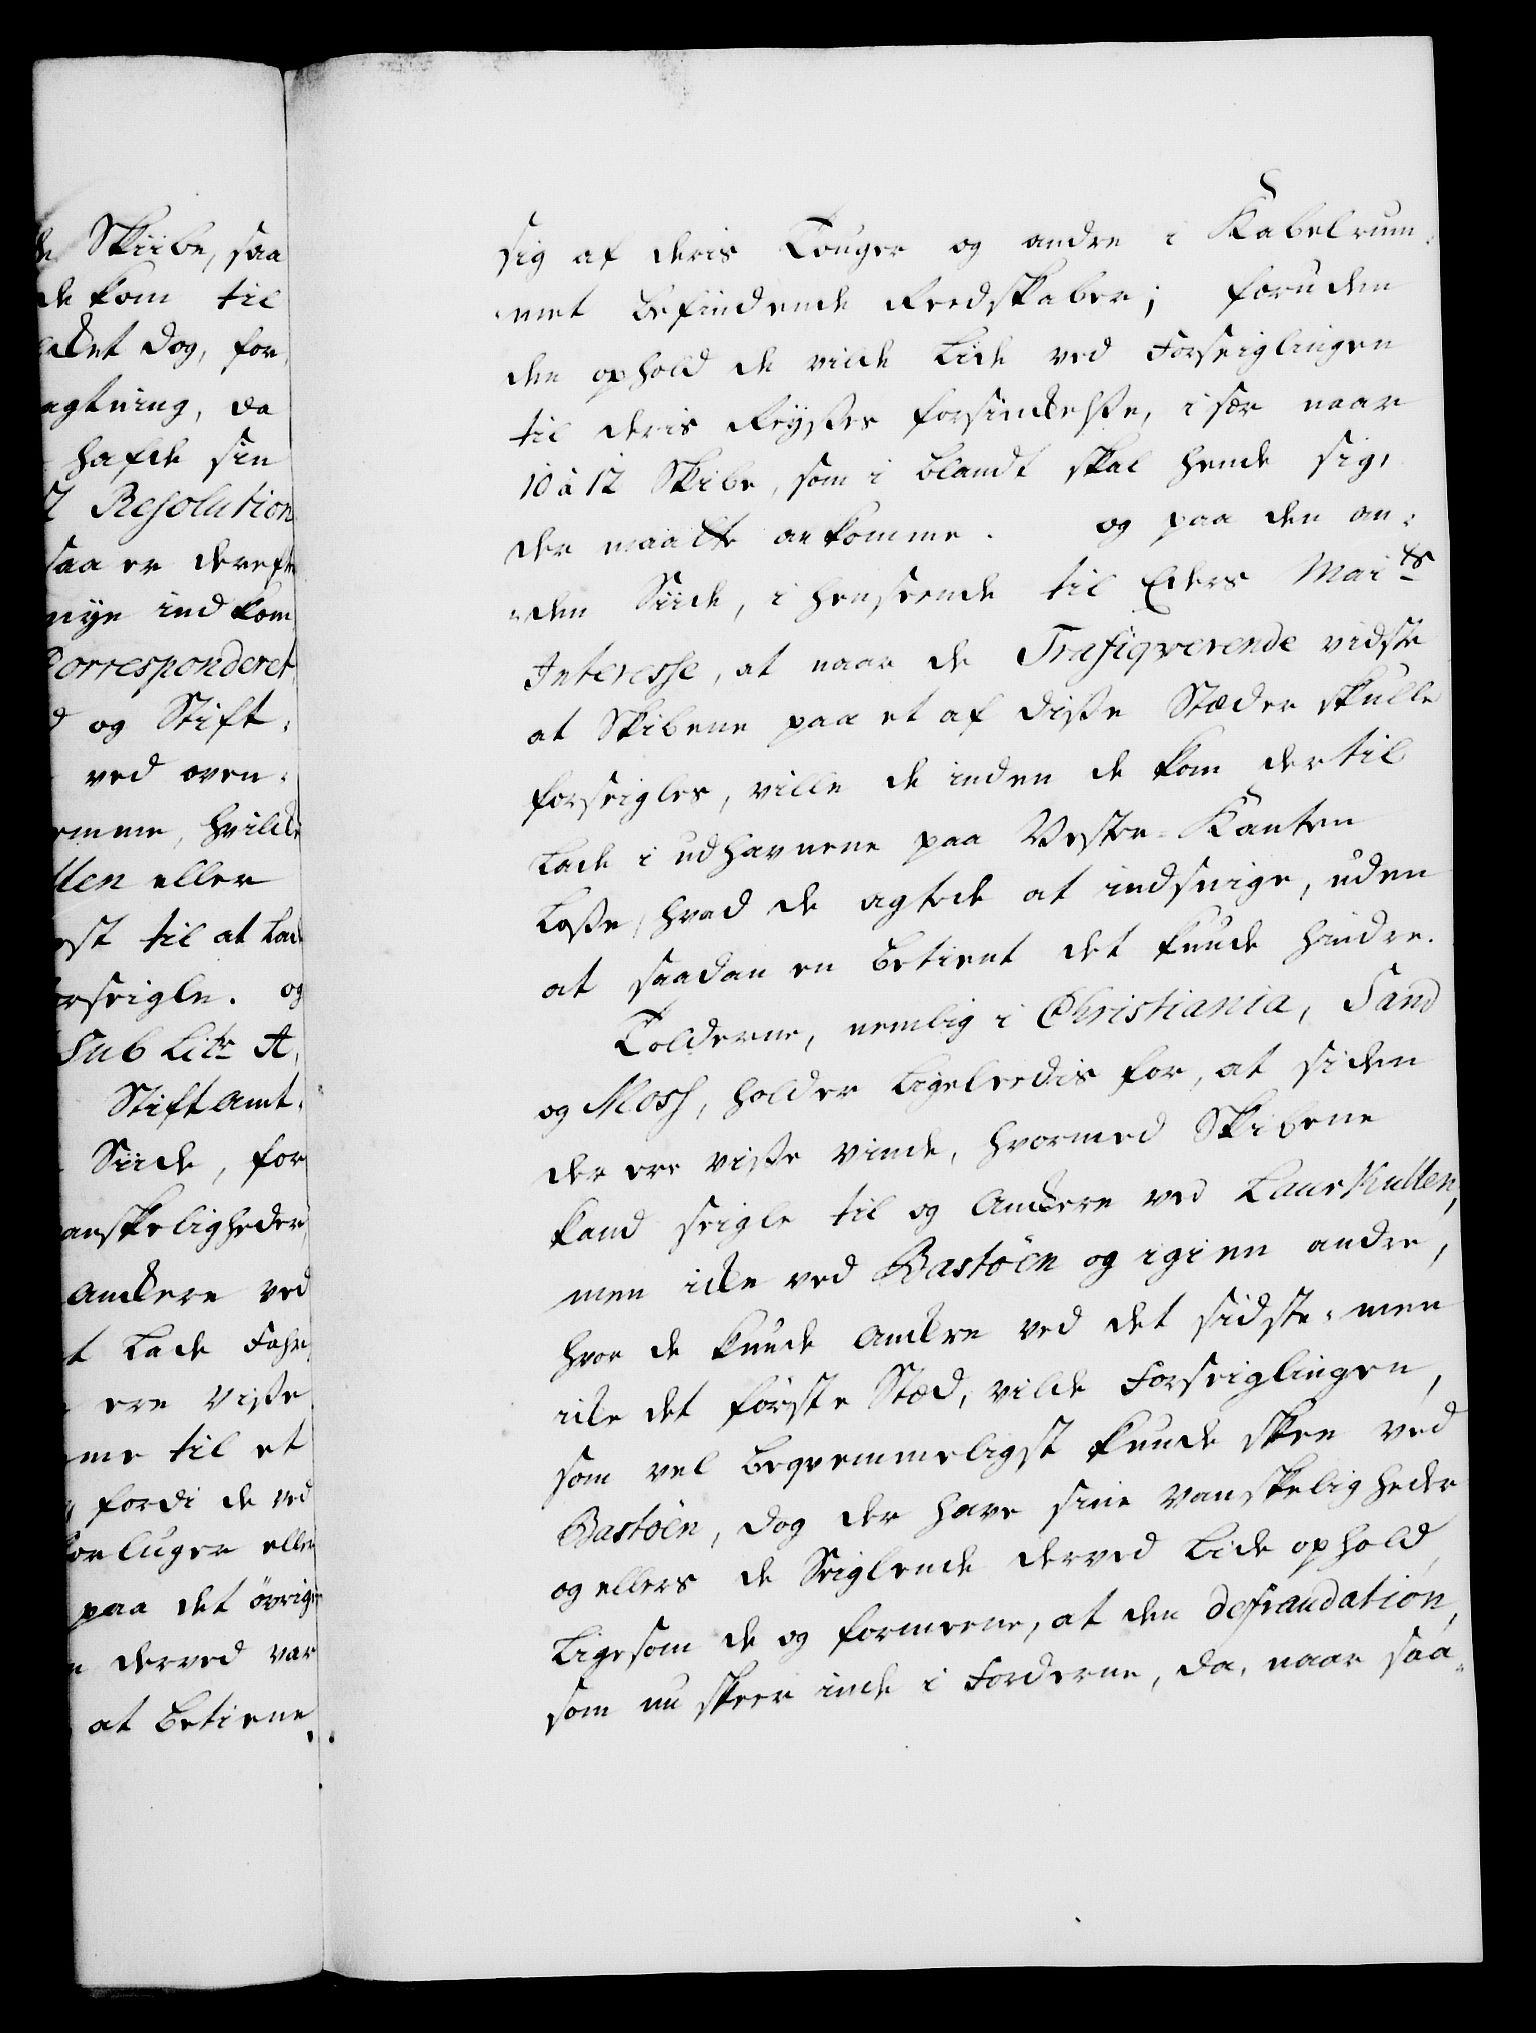 de Skiibe, saa
de kom til
cket dog, for
agtning, da
hafde sin
Resolution
saa er dereft
nye indkom
Corresponderet
og Stift:
ved oven:
emme, hvilcke
llen eller
ost til at lade
orseigle. og
Sub Litr. A,
Stiftamt:
Siide, for
anskeligheder,
anckere ved
t lade Fahr
ere visse
me til et
fordi de ved
orluger eller
paa det övrige
derved var
at betiene
sig af deris Touger og andre i Kabelrum:
met befindende Reedskaber; foruden
den ophold de vilde lide ved Forseiglingen
til deris Reyses forsinckelse, i sær naar
10 à 12 Skibe, som i blandt skal hende sig,
der maatte ankomme. og paa den an:
den Siide, i henseende til Eders Maits
Interesse, at naar de Trafiqverende vidste
at Skibene paa et af disse Stæder skulle
forseigles, ville de inden de kom dertil
lade i udhavnene paa Vester-Kanten
losse, hvad de agtede at indsnige, uden
at saadan en betient det kunde hindre.
Tolderne, nemlig i Christiania, Sand
og Moss, holder ligeleedis for, at siden
der ere visse vinde, hvormed Skibene
kand seigle til og anckere ved Laurkullen,
men icke ved Bastöen og igien andre,
hvor de kunde anckre ved det sidste, men
icke det förste Stæd, vilde Forseiglingen,
som vel beqvemmeligst kunde skee ved
Bastöen, dog der have sine vanskeligheder
og ellers de Seiglende derved lide ophold,
ligesom de og formeene, at den defraudation,
som nu skeer inde i Forderne, da, naar saa: